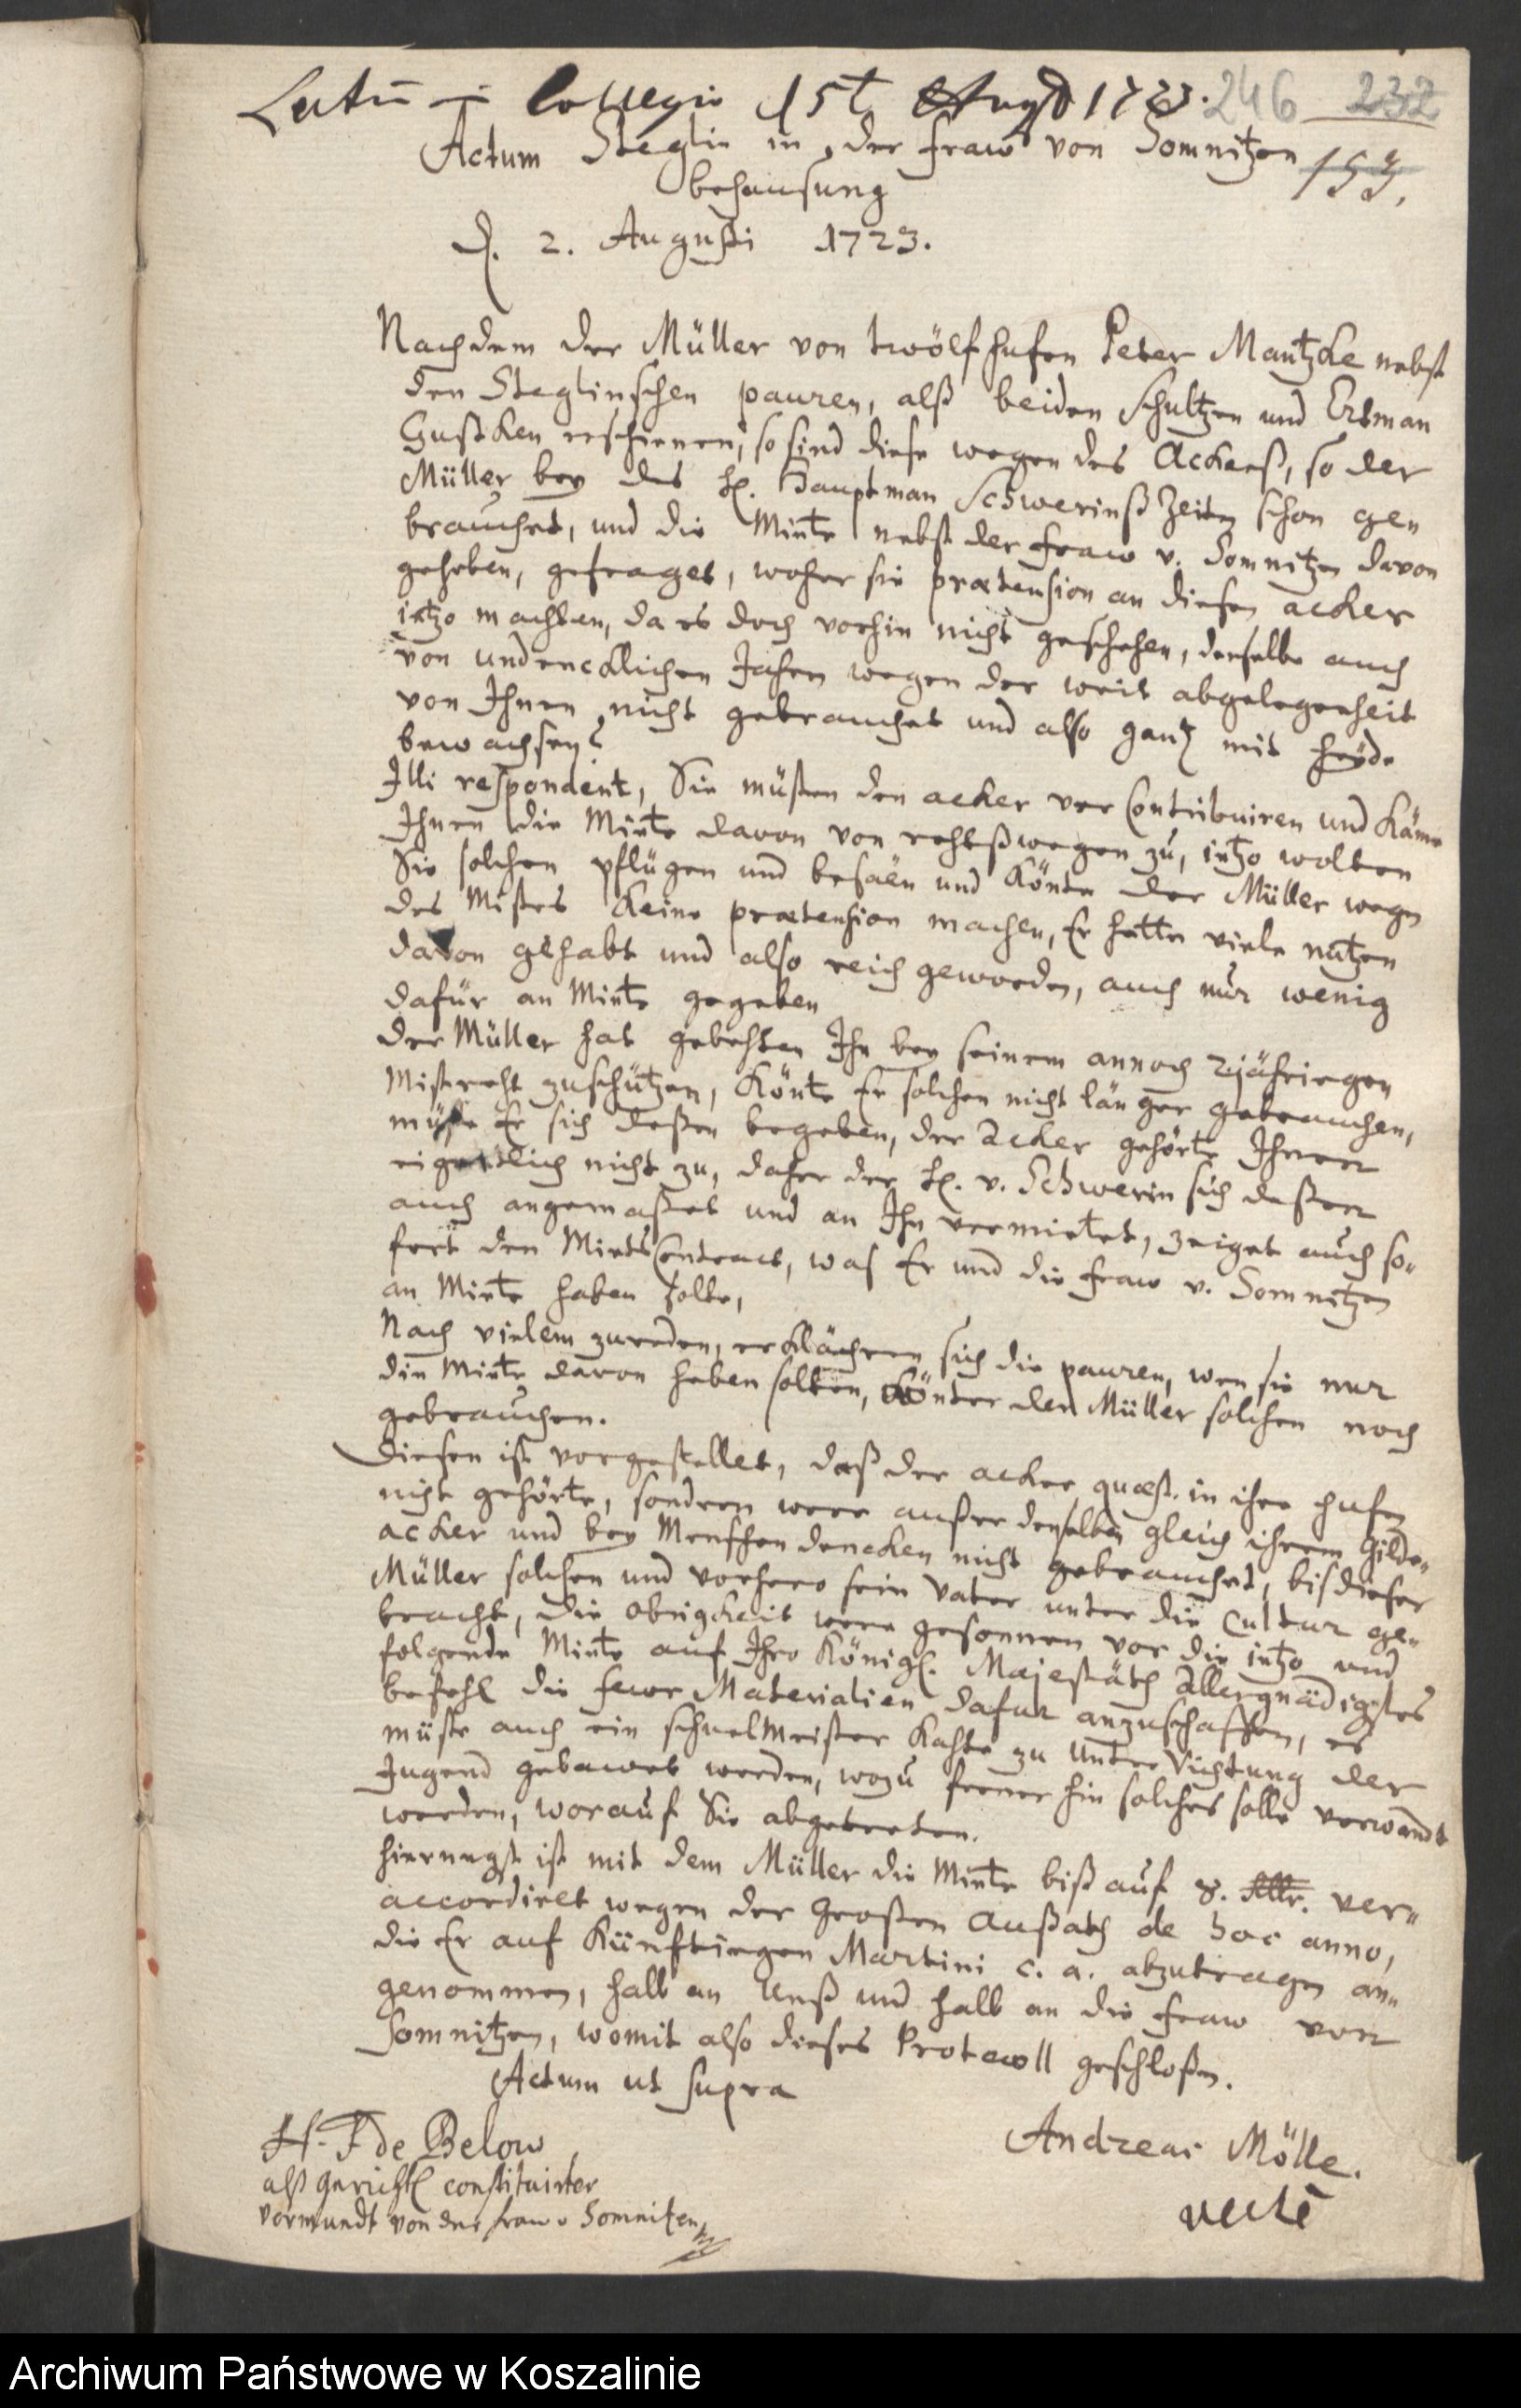 Lectū in Collegio d 15t Aug 1723. 246 232
Actum Steglin in der Fraw von Somnitzen 153.
behausung
d. 2. Augusti 1723.
Nachdem der Müller von twölfhufen Peter Mantzke nebst
den Steglinschen pauren, alß beiden Schultzen und Ertman
Gustken erschienen, so sind diese wegen des Ackerß, so der
Müller bey des H. Hauptman Schwerinß Zeiten schon ge=
brauchet, und die Miete nebst der Fraw v. Somnitzen davon
gehoben, gefraget, woher sie prætension an diesen acker
ietzo machten, da es doch vorhin nicht geschehen, derselbe auch
von undencklichen Jahren wegen der weit abgelegenheit
von Ihnen nicht gebrauchet und also gantz mit heyde
bewachsen?
Illi respondent, Sie müßen den acker ver Contribuiren und käme
Ihnen die Miete davon von rechtßwegen zu, ietzo wolten
Sie solchen pflügen und besäen und könte der Müller wegen
des Mistes keine prætension machen, Er hette viele nutzen
davon gehabt und also reich geworden, auch nur wenig
dafür an Miete gegeben
der Müller hat gebehten Ihn bey seinem annoch 2jährigen
Mistrecht zuschützen, könte Er solchen nicht länger gebrauchen,
müste Er sich deßen begeben, der Acker gehörte Ihnen
eigentlich nicht zu, daher der H. v. Schwerin sich deßen
auch angemaßet und an Ihn vermietet, zeiget auch so=
fort den MietsContract, was Er und die Fraw v. Somnitzen
an Miete haben solte,
Nach vielem zureden, erklähren sich die pauren, wen sie nur
die Miete davon haben solten, könte der Müller solchen noch
gebrauchen.
diesen ist vorgestellet, daß der acker quæst. in ihre hufen
nicht gehörte, sondern were außer denselben gleich ihrem hilde=
acker und bey Menschen dencken nicht gebrauchet, bis dieser
Müller solchen und vorhero sein Vater unter die Cultur ge=
bracht, die Obrigkeit were gesonnen vor die ietzo und
folgende Miete auf Ihro Königl. Majestäth Allergnädigstes
befehl die Feuer Materialien dafur anzuschaffen, es
müste auch ein schuelMeister Kahte zu UnterRichtung der
Jugend gebawet werden, wozu ferner hin solches solle verwandt
werden, worauf Sie abgetreten.
hiernegst ist mit dem Müller die Miete biß auf 8. Rtlr. ver=
accordiret wegen der großen Außath de hoc anno,
die Er auf künftigen Martini c. a. abzutragen an=
genommen, halb an Unß und halb an die Fraw von
Somnitzen, womit also dieses Protocoll geschloßen.
Actum ut supra
H. F de Below
alß gerichtl constituirter
Vormundt von der fraw v Somnitzen
Andreas Mölle.
verte
Archiwum Państwowe w Koszalinie